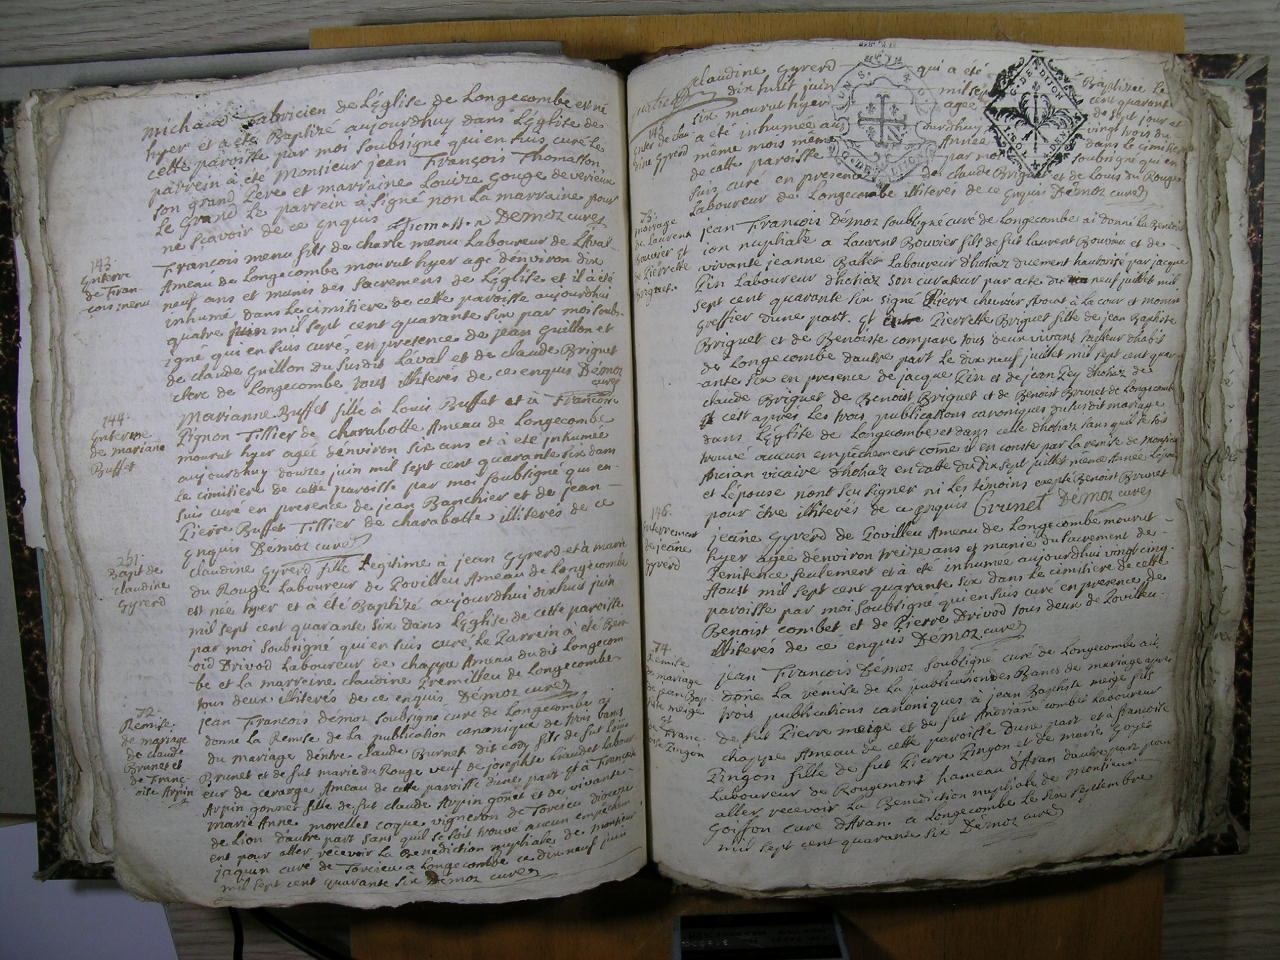 michaud fabricien de Léglise de Longecombe est né
hyer et a été Baptizé aujourdhuy dans Léglise de
cette paroisse par moi soubsigné qui en suis curé Le
parrein a été Monsieur jean François Thomasson
son grand Pere et marraine Louize gouge de verieux
Le Grand Le parrein a signé non La marraine pour
ne scavoir de ce enquis Démoz curé
143
Enterre
de Fran
cois menu
François menu fils de charle menu Laboureur de Lâval
Ameau de Longecombe mourut hyer age denviron dix
neuf ans et munis des sacremens de Léglise et il a été
inhumé dans le cimitiere de cette paroisse aujourdhuy
quatre juin mil sept cent quarante six par moi soubs-
igné qui en suis curé, en presence de jean Guillon et
de claude Guillon du susdit Lâval et de claude Briguet
clerc de Longecombe tous illiterés de ce enquis Démoz
curé
144
Enterre
de mariane
Buffet
Marianne Buffet fille à Louis Buffet et à Francoise
Pignon Tissier de charabotte Ameau de Longecombe
mourut hyer agée denviron six ans et a été inhumée
aujourdhuy douze juin mil sept cent quarante six dans
le cimitiere de cette paroisse par moi soubsigné qui en-
suis curé en presence de jean Banchier et de jean-
Pierre Buffet Tissier de charabotte illiterés de ce
enquis Démoz curé
251
Bapt de
claudine
Gyrerd
claudine Gyrerd fille Legtime à jean Gyrerd et à marie
du Rouge Laboureur de Povilleu Ameau de Longecombe
est née hyer et a été Baptizé aujourdhui dixhuit juin
mil sept cent quarante six dans Léglise de cette paroisse
par moi soubsigné qui en suis curé, Le Parrein a été Ben
oid Drivod Laboureur de chappe Ameau du dit Longecom
be et la marreine claudine Gremilleu de Longecombe
tous deux illiterés de ce enquis Démoz curé
72
Remise
de mariage
de claude
Brunet et
de Franç-
oise Arpin
jean François démoz soubsigné curé de Longecombe a
donné la Remise de la publication canonique de trois bans
du mariage dentre claude Burnet dit cody fils de fut Louis
Brunet et de fut marie du Rouge veuf de josephte chaudet labour
eur de cerarge Ameau de cette paroisse d'une part et à Françoise
Arpin gonnet fille de fut claude Arpin gonet et de vivante
marie Anne morelles coque vigneron de Torcieu Diocese
de Lion d'autre part sans quil se soit trouvé aucun empêchem
ent pour aller recevoir La Benediction nuptiale de monsieur
jaquin curé de Torcieu a Longecombe ce dix neuf juin
mil sept cent quarante six Démoz curé
claudine Gyrerd qui a été Baptizee Le
dix huit juin mil sept cent quarant
145
Enter de clau
dine Gyrerd
six mourut hyer agée de sept jour et
a été inhumée aujourdhuy vingt trois du
même mois même Année dans le cimitie
de cette paroisse par moi soubsigné qui en
suis curé en presence de claude Briguet et de Louis du Rouge
Laboureur de Longecombe illiterés de ce enquis Démoz curé
73
mariage
de Laurent
Bouvier et
de Pierrette
Briguet
jean François Démoz soubsigné curé de Longecombe ai donné la Benedict
ion nuptiale a Laurent Bouvier fils de fut laurent Bouvier et de-
vivante jeanne Ballet Laboureur dhotiaz ducment hautorisé par jacque
Pin Laboureur dhotiaz son curateur par acte du neuf juillet mil
sept cent quarante six signé Pierre chevrier Avocat à Le cour et monin
greffier dune part. Et Pierrette Briguet fille de jean Baptiste
Briguet et de Benoiste compare tous deux vivans Tailleur dhabit
de Longecombe dautre part le dix neuf juillet mil sept cent quar-
ante six en presence de jacque Pin et de jean Pey dhotiaz de
claude Briguet de Benoist Briguet et de Benoist Brunet de Longecombe
cest apres Les trois publications canoniques du susdit mariage
dans Léglise de Longecombe et dans celle dhotiaz sans quil se soit
trouvé aucun empêchement come il en conste par la remise de monsieur
Ancian vicaire dhotiaz en datte du dix sept juillet même Année Lepoux
et Lépouse nont seu signer ni les témoins exepté Benoist Brunet
pour être illiterés de ce enquis Brunet Démoz curé
146
Enterrement
de jeane
Gyrerd
jeane Gyrerd de Povilleu Ameau de Longecombe mourut-
hyer agée denviron treize ans et munie du sacrement de-
Penitence seulement et a été inhumée aujourdhui vingt cinq
Aoust mil sept cent quarante six dans le cimitiere de cette
paroisse par moi soubsigné qui en suis curé en presence de
Benoist combet et de Pierre Drivod tous deux de Povilleu
illiterés de ce enquis Démoz curé
74
Remise
de mariage
de jean Bap
tiste meige
et
de Franc
oise Pingon
jean François Démoz soubsigné curé de Longecombe ai
doné La remise de La publication des Bancs de mariage apres
trois publications canoniques à jean Baptiste meige fils
de fut Pierre meige et de fut Andriane combet Laboureur
chappe Ameau de cette paroisse dune part et à francoise
Pingon fille de fut Pierre Pingon et de marie Goyet
Laboureur de Rougemont hameau d'Aran dautre part pour
aller recevoir La Benediction nuptiale de monsieur
Goiffon curé d'Aran a Longecombe le six septembre
mil sept cent quarante six Démoz curé